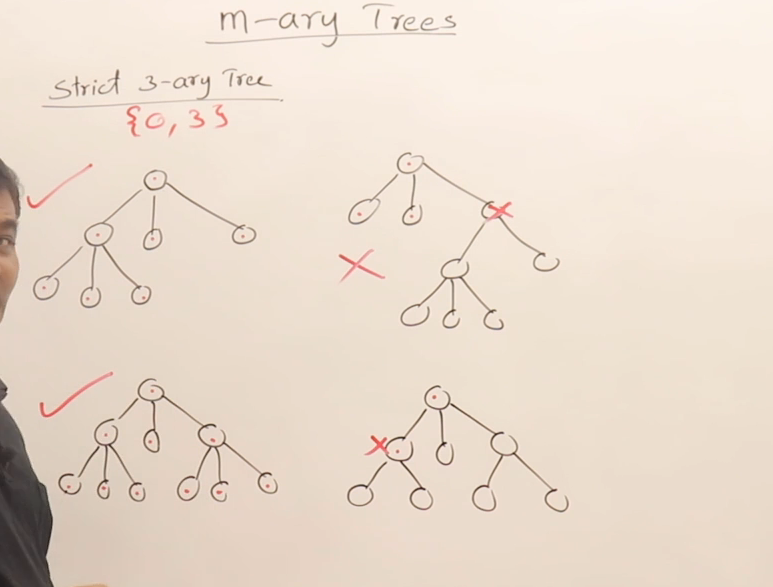 m-ary Trees
Strict 3-ary Tree
{0,3}